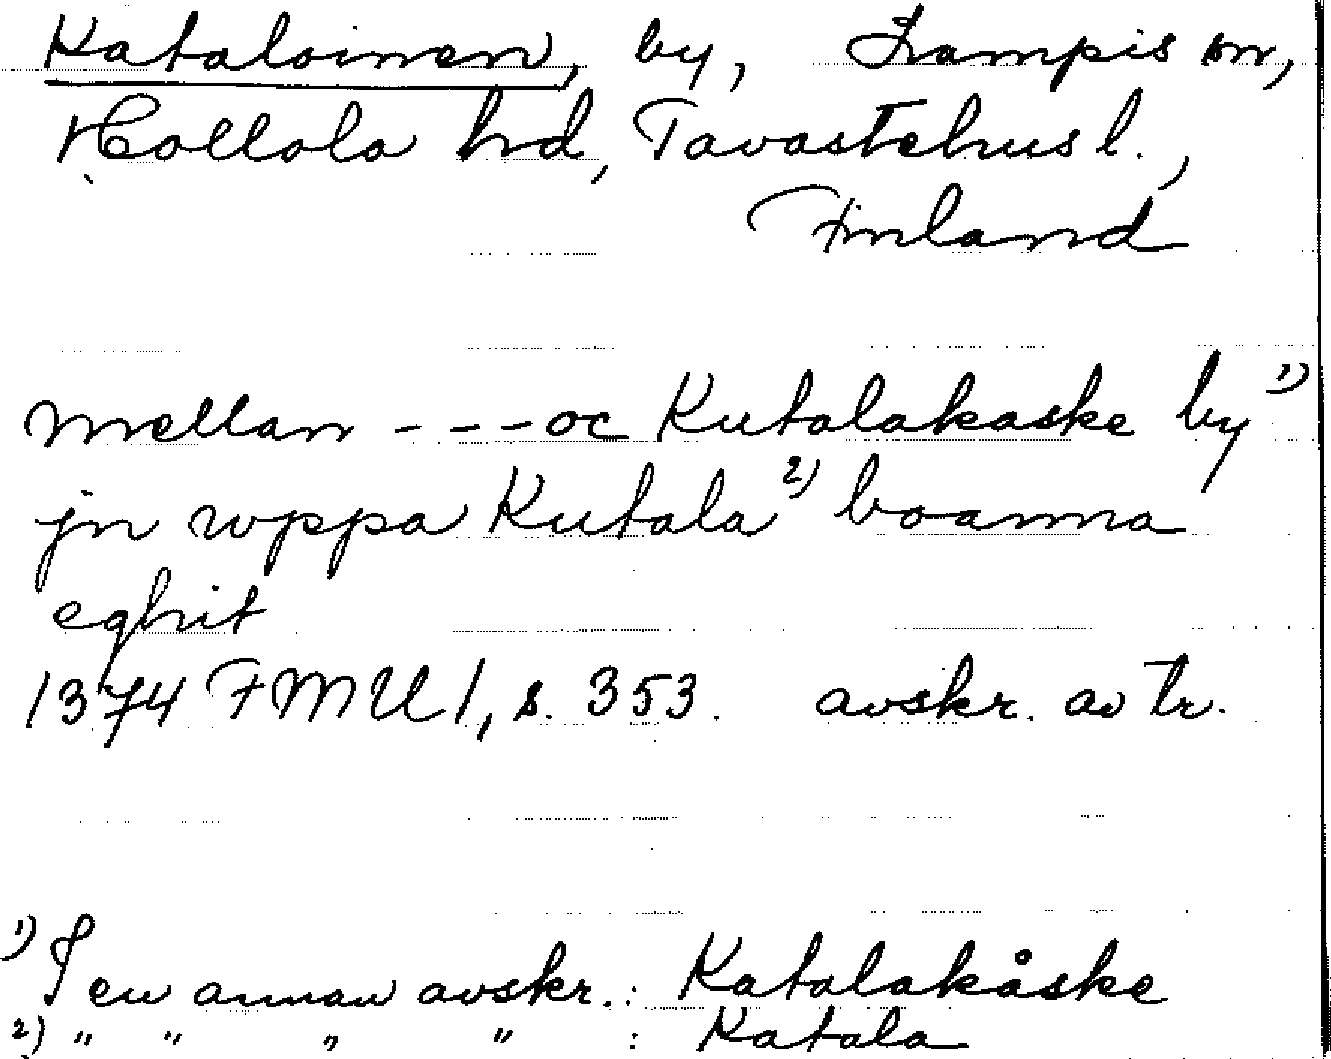 Kataloinen, by, Lampis sn,
Hollola hd, Tavastehus l.,
Finland
mellan - - - oc Kutalakaske by 1)
jn wppa Kutala 2) boanna
eghit
1374 FMU 1, s. 353. avskr. av tr.
1) I en annan avskr.: Katalakåske
2) " " " " : Katala